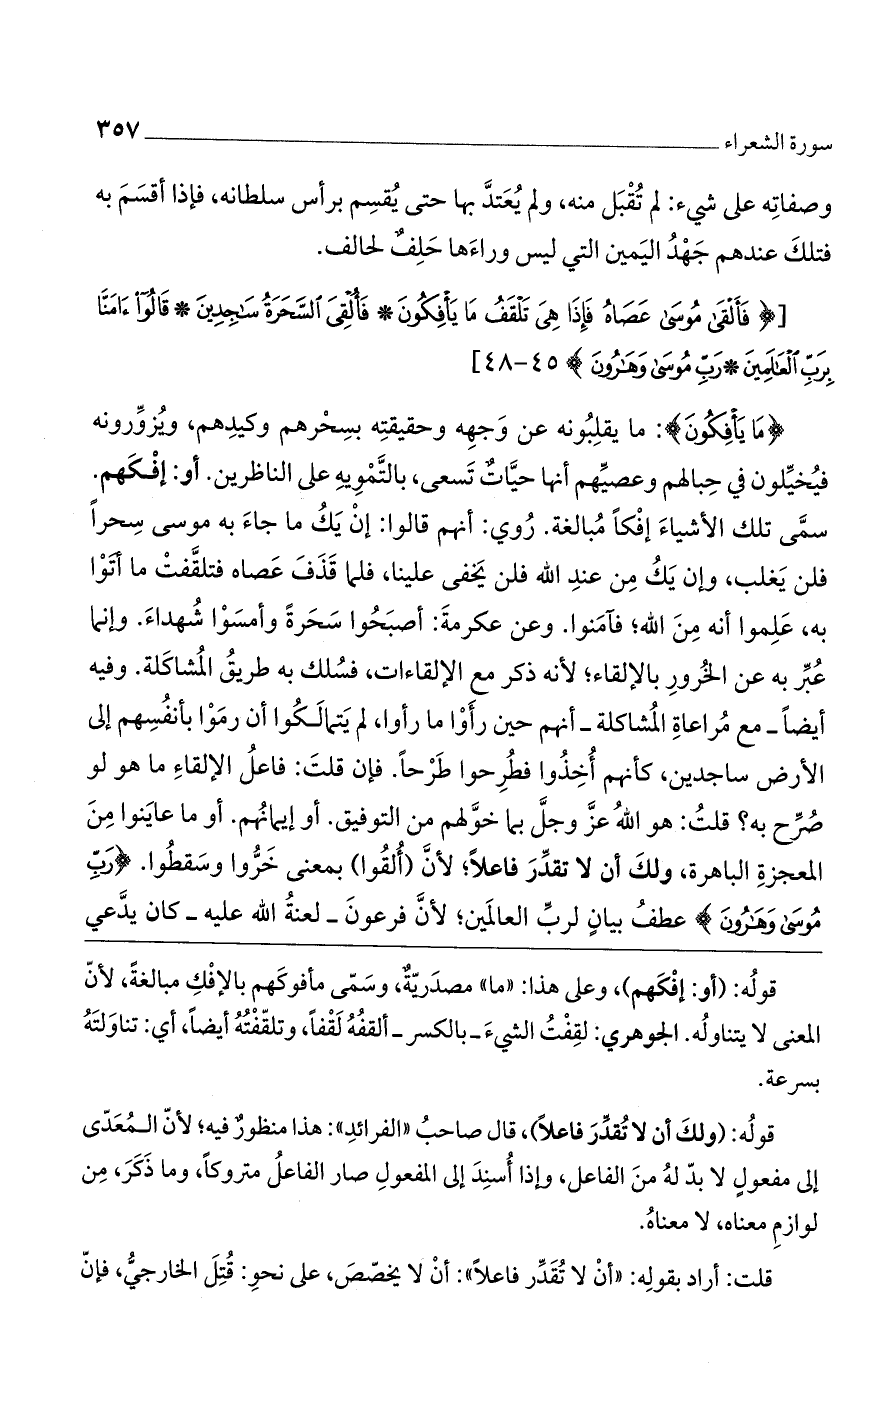 سورة الشعراء ٣٥٧
وصفاتِه على شيء: لم تُقْبَل منه، ولم يُعتَدَّ بها حتى يُقسِم برأس سلطانه، فإذا أقسَمَ به
فتلكَ عندهم جَهْدُ اليَمين التي ليس وراءَها حَلِفٌ لحالف.
[﴿ فَأَلْقَىٰ مُوسَىٰ عَصَاهُ فَإِذَا هِىَ تَلْقَفُ مَا يَأْفِكُونَ * فَأُلْقِىَ ٱلسَّحَرَةُ سَٰجِدِينَ * قَالُوٓا۟ ءَامَنَّا
بِرَبِّ ٱلْعَٰلَمِينَ * رَبِّ مُوسَىٰ وَهَٰرُونَ ﴾ ٤٥-٤٨]
﴿مَا يَأْفِكُونَ﴾: ما يقلِبُونه عن وَجهِه وحقيقتِه بسِحْرهم وكيدِهم، ويُزوِّرونه
فيُخيِّلون في حِبالهم وعصيِّهم أنها حيَّاتٌ تَسعى، بالتَّمْويهِ على الناظرين. أو: إفْكَهم.
سمَّى تلك الأشياءَ إفْكاً مُبالغة. رُوي: أنهم قالوا: إنْ يَكُ ما جاءَ به موسى سِحراً
فلن يَغلب، وإن يَكُ مِن عندِ الله فلن يَخفى علينا، فلما قَذَفَ عَصاه فتلقَّفتْ ما أتَوْا
به، عَلِموا أنه مِنَ الله؛ فآمَنوا. وعن عكرمةَ: أصبَحُوا سَحَرةً وأمسَوْا شُهداءَ. وإنما
عُبِّر به عن الخُرورِ بالإلقاء؛ لأنه ذكر مع الإلقاءات، فسُلك به طريقُ المُشاكَلة. وفيه
أيضاً ـ مع مُراعاةِ المُشاكلة ـ أنهم حين رأَوْا ما رأوا، لم يَتمالَكُوا أن رمَوْا بأنفُسِهم إلى
الأرض ساجدين، كأنهم أُخِذُوا فطُرِحوا طَرْحاً. فإن قلتَ: فاعلُ الإلقاءِ ما هو لو
صُرِّح به؟ قلتُ: هو اللهُ عزَّ وجلَّ بما خوَّلهم من التوفيق. أو إيمانُهم. أو ما عايَنوا مِنَ
المعجزةِ الباهرة، ولكَ أن لا تقدِّرَ فاعلاً؛ لأنَّ (أُلقُوا) بمعنى خَرُّوا وسَقطُوا. ﴿رَبِّ
مُوسَىٰ وَهَٰرُونَ ﴾ عطفُ بيانٍ لربِّ العالمَين؛ لأنَّ فرعونَ ـ لعنةُ الله عليه ـ كان يدَّعي
قولُه: (أو: إفْكَهم)، وعلى هذا: «ما» مصدَريّةٌ، وسَمّى مأفوكَهم بالإفْكِ مبالغةً، لأنّ
المعنى لا يتناولُه. الجوهري: لقِفْتُ الشيءَ ـ بالكسر ـ ألقفُهُ لَقْفاً، وتلقّفْتُهُ أيضاً، أي: تناوَلتَهُ
بسرعة.
قولُه: (ولكَ أن لا تُقدِّرَ فاعلاً)، قال صاحبُ «الفرائدِ»: هذا منظورٌ فيه؛ لأنّ الـمُعَدّى
إلى مفعولٍ لا بدّ لهُ منَ الفاعل، وإذا أُسنِدَ إلى المفعولِ صار الفاعلُ متروكاً، وما ذَكَرَ، مِن
لوازمِ معناه، لا معناهُ.
قلت: أراد بقولِه: «أنْ لا تُقَدِّر فاعلاً»: أنْ لا يخصّصَ، على نحوِ: قُتِلَ الخارجيُّ، فإنّ